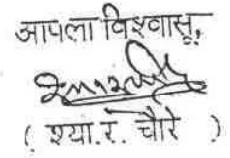 आपला विश्वासू,
( श्या.र. चौरे )